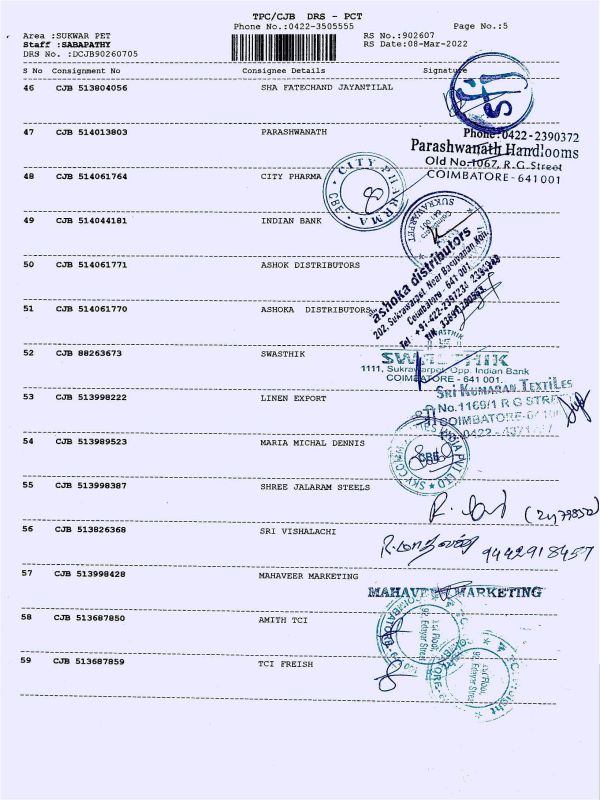 TPC/CJB DRS - PCT
Phone No.:0422-3505555
Page No.:5
Area :SUKWAR PET
Staff :SABAPATHY
DRS No. :DCJB90260705
RS No.:902607
RS Date:08-Mar-2022
S No Consignment No Consignee Details Signature
46 CJB 513804056 SHA FATECHAND JAYANTILAL
47 CJB 514013803 PARASHWANATH
Phone:0422-2390372
Parashwanath Handlooms
Old No.1067, R.G.Street
COIMBATORE-641001
48 CJB 514061764 CITY PHARMA
CITY PHARMA
CBE
49 CJB 514044181 INDIAN BANK
SUKRAWARPET
Coimbatore
641 001
50 CJB 514061771 ASHOK DISTRIBUTORS
51 CJB 514061770 ASHOKA DISTRIBUTORS
ashoka distributors
202, Sukrawarpet, Near
Coimbatore - 641 001
52 CJB 88263673 SWASTHIK
SWASTHIK
1111, Sukrawarpet, Opp. Indian Bank
COIMBATORE - 641 001.
53 CJB 513998222 LINEN EXPORT
SRI KUMARAN TEXTILES
No.1169/1 R G STREET
COIMBATORE
54 CJB 513989523 MARIA MICHAL DENNIS
CBE
55 CJB 513998387 SHREE JALARAM STEELS
56 CJB 513826368 SRI VISHALACHI
9442918457
57 CJB 513998428 MAHAVEER MARKETING
MAHAVEER MARKETING
58 CJB 513687850 AMITH TCI
1st Floor,
59 CJB 513687859 TCI FREISH
1st Floor,